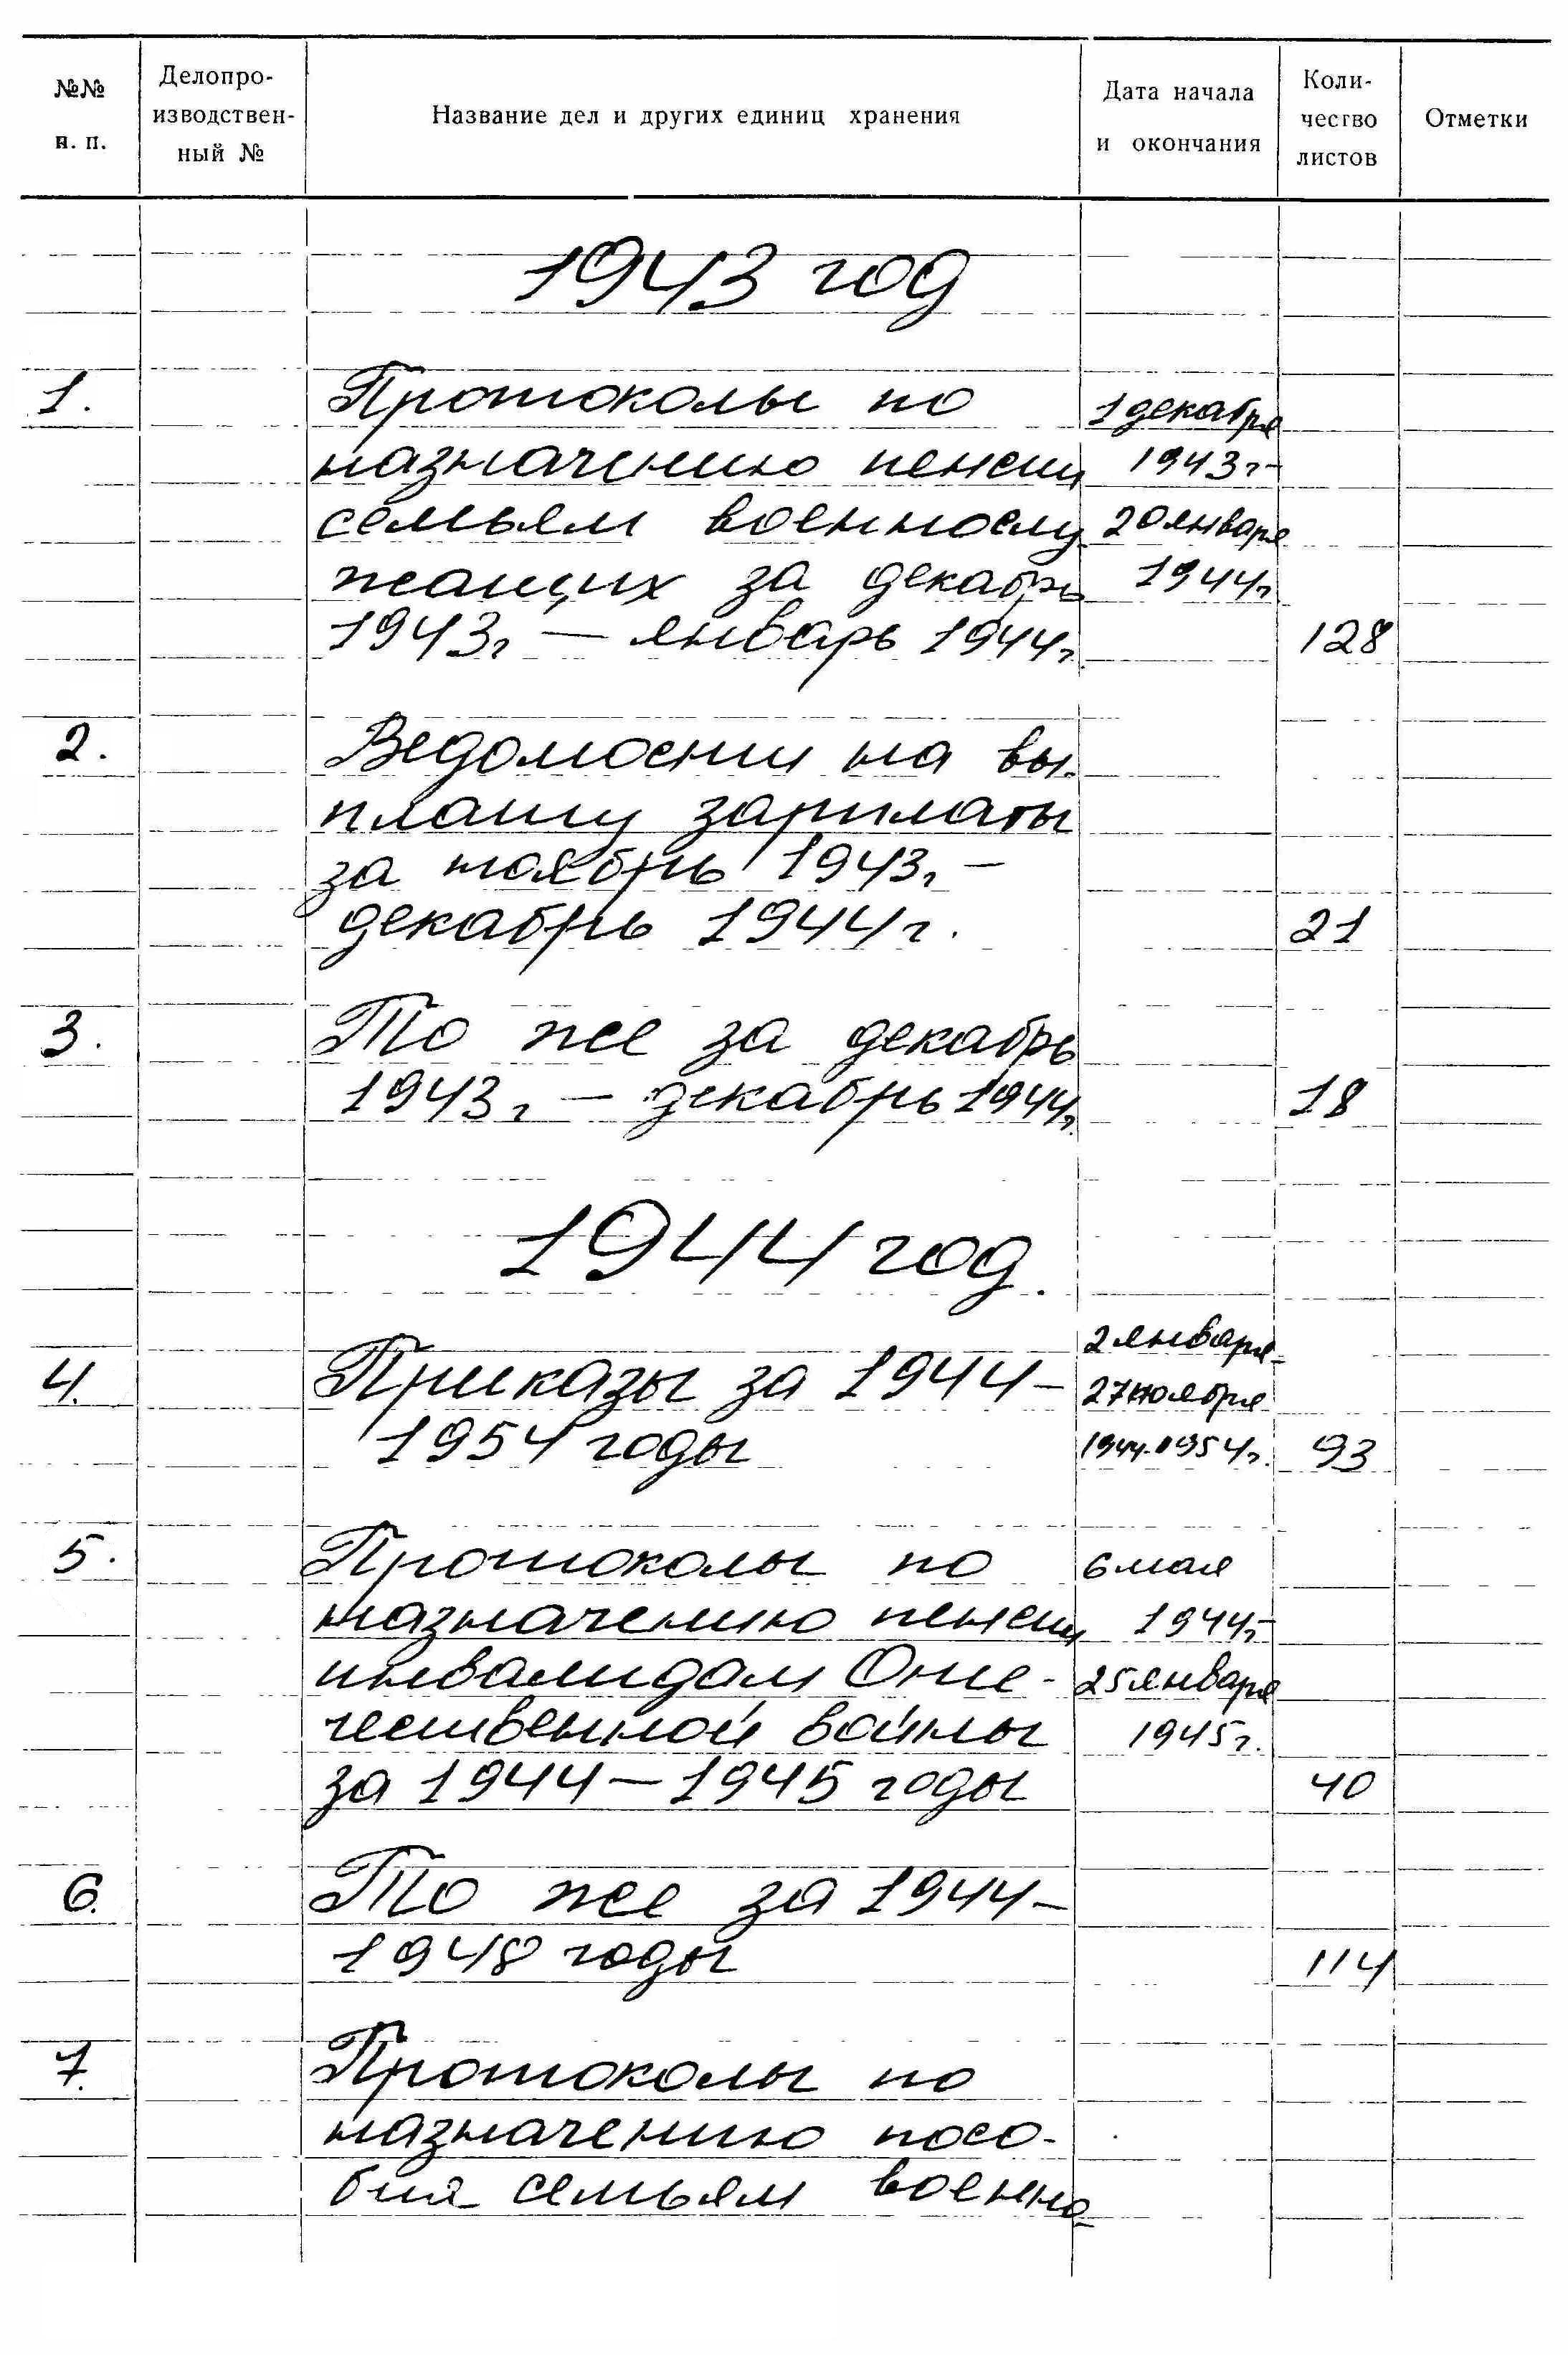 №№ п. п. Делопро-изводствен-ный № Название дел и других единиц хранения Дата начала и окончания Коли-чество листов Отметки
1943 год
1. Протоколы по 1 декабря
назначению пенсии 1943г-
семьям военнослу- 20 января
жащих за декабрь 1944г
1943г – январь 1944г. 128
2. Ведомости на вы-
плату зарплаты
за ноябрь 1943г –
декабрь 1944г. 21
3. То же за декабрь
1943г – декабрь 1944г. 18
1944 год.
2 января-
4. Приказы за 1944- 27 ноября
1954 годы 1944-1954г. 93
5. Протоколы по 6 мая
назначению пенсии 1944г-
инвалидам Оте- 25 января
чественной войны 1945г.
за 1944-1945 годы 40
6. То же за 1944-
1948 годы 114
7. Протоколы по
назначению посо-
бия семьям военно-